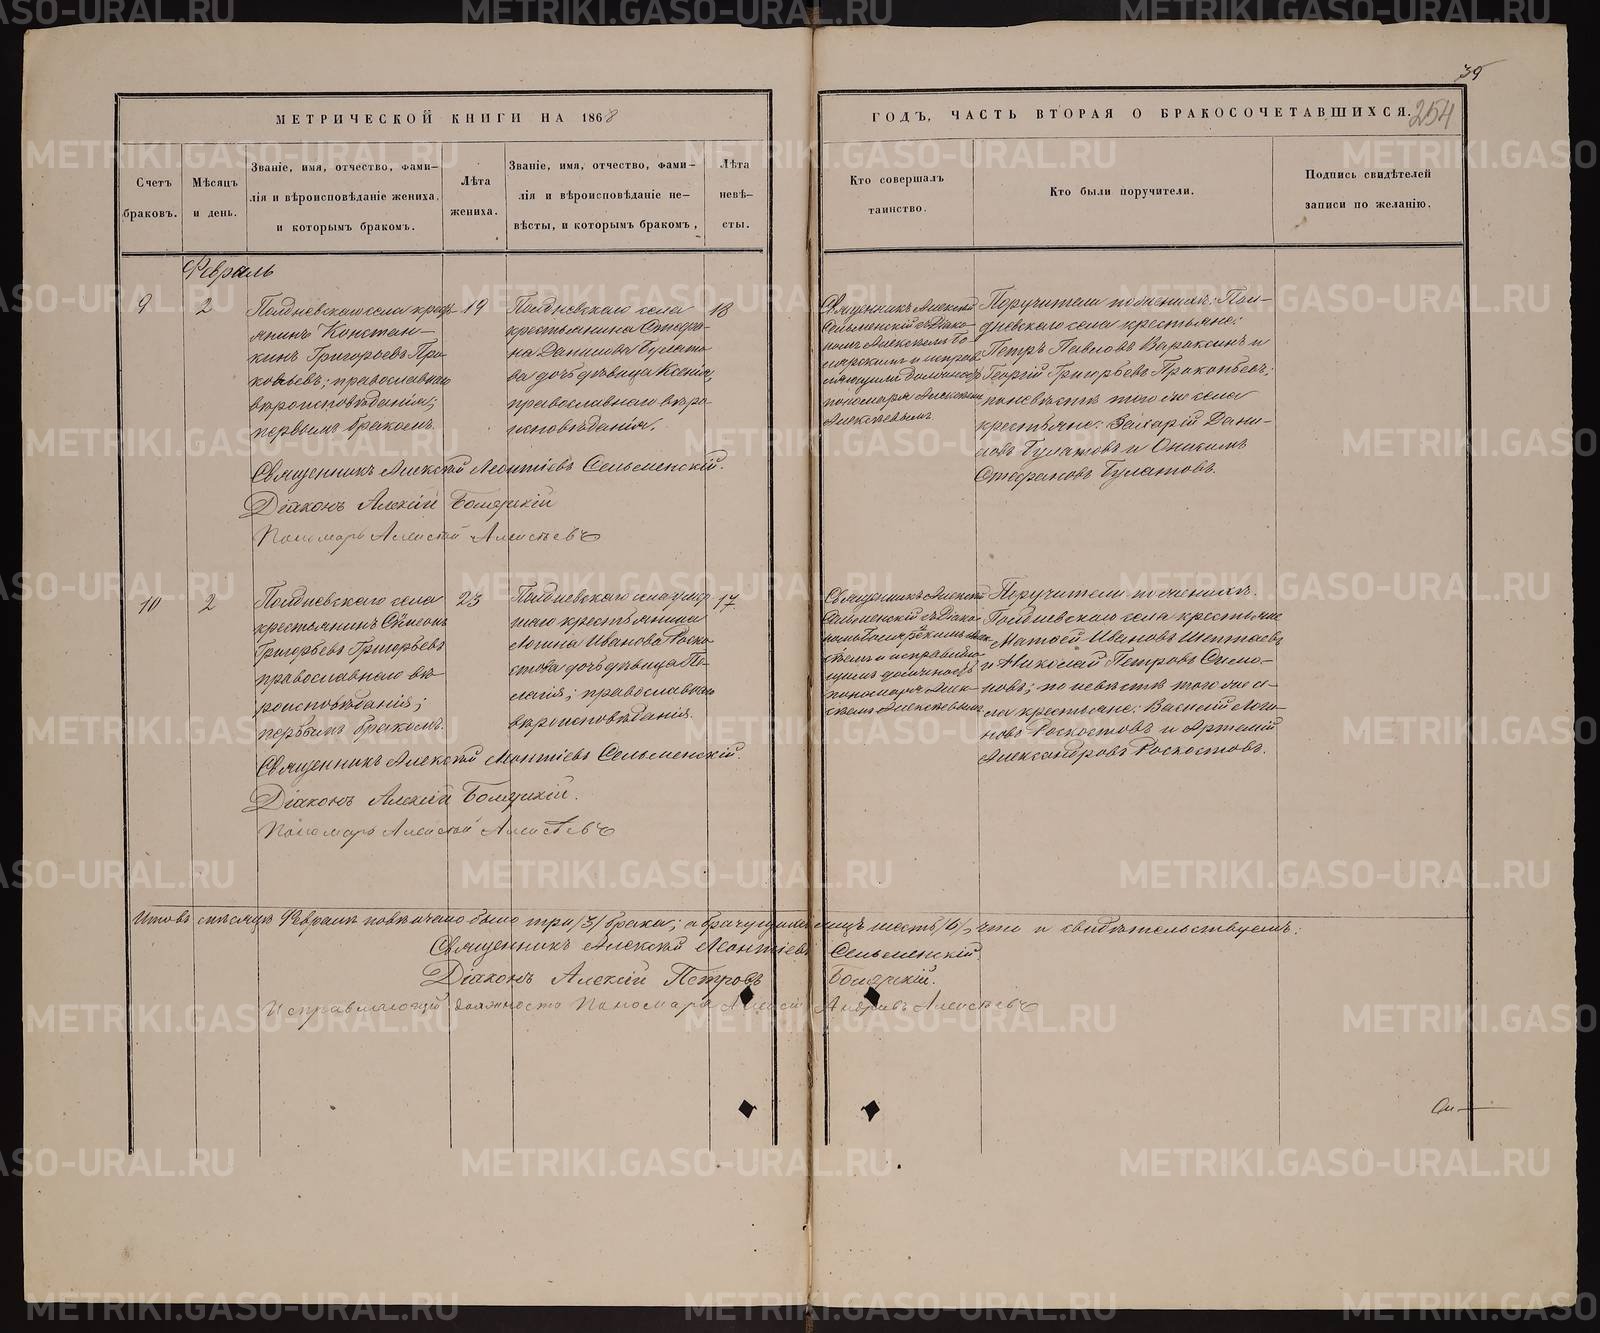 39
МЕТРИЧЕСКОЙ КНИГИ НА 1868
ГОДЪ, ЧАСТЬ ВТОРАЯ О БРАКОСОЧЕТАВШИХСЯ.
254
Счетъ
браковъ.
Мѣсяцъ
и день.
Званіе, имя, отчество, фами-
лія и вѣроисповѣданіе жениха,
и которымъ бракомъ.
Лѣта
жениха.
Званіе, имя, отчество, фами-
лія и вѣроисповѣданіе не-
вѣсты, и которымъ бракомъ,
Лѣта
невѣ-
сты.
Кто совершалъ
таинство.
Кто были поручители.
Подпись свидѣтелей
записи по желанію.
Февраль
9
2
Полдневскаго села кресть
янинъ Констан-
тинъ Григорьевъ Про
копьевъ; православнаго
вѣроисповѣданія;
первымъ бракомъ.
19
Полдневскаго села
крестьянина Стефа-
на Данилова Булато
ва дочь дѣвица Ксенія,
православнаго вѣро
исповѣданія.
18
Священникъ Алексѣй
Сельменскій съ Діако-
номъ Алексѣемъ
и исправ
ляющимъ должность
пономаря Алексѣемъ
Алексѣевымъ
Поручители по женихѣ: Пол-
дневскаго села крестьяне:
Петръ Павловъ Вараксинъ и
Георгій Григорьевъ Прокопьевъ;
по невѣстѣ того же села
крестьяне: Захарій Дани-
ловъ Булатовъ и
Стефановъ Булатовъ.
Священникъ Алексѣй Леонтіевъ Сельменскій.
Діаконъ Алексій
Пономарь Алексѣй Алексѣевъ
10
2
Полдневскаго села
крестьянинъ Сѵмеонъ
Григорьевъ Григорьевъ
православнаго вѣ
роисповѣданія;
первымъ бракомъ.
23
Полдневскаго села умер
шаго крестьянина
Логина Иванова Роско
стова дочь дѣвица Пе-
лагія; православнаго
вѣроисповѣданія.
17
Священникъ Алексѣй
Сельменскій съ Діако
номъ
и исправляю
щимъ должность
пономаря Алек-
сѣемъ Алексѣевымъ
Поручители по женихѣ:
Полдневскаго села крестьяне
Матѳей Ивановъ
и Николай Петровъ Симо-
новъ; по невѣстѣ того же се-
ла крестьяне: Василій Логи-
новъ Роскостовъ и Артемій
Александровъ Роскостовъ.
Священникъ Алексѣй Леонтіевъ Сельменскій.
Діаконъ Алексій
Пономарь Алексѣй Алексѣевъ
Итого въ мѣсяцѣ Февралѣ повѣнчано было три /3/ брака; а брачущихся лицъ шесть /6/, что и свидѣтельствуемъ:
Священникъ Алексѣй Леонтіевъ Сельменскій.
Діаконъ Алексій Петровъ
Исправляющій должность Пономаря Алексѣй Алексѣевъ
METRIKI.GASO-URAL.RU